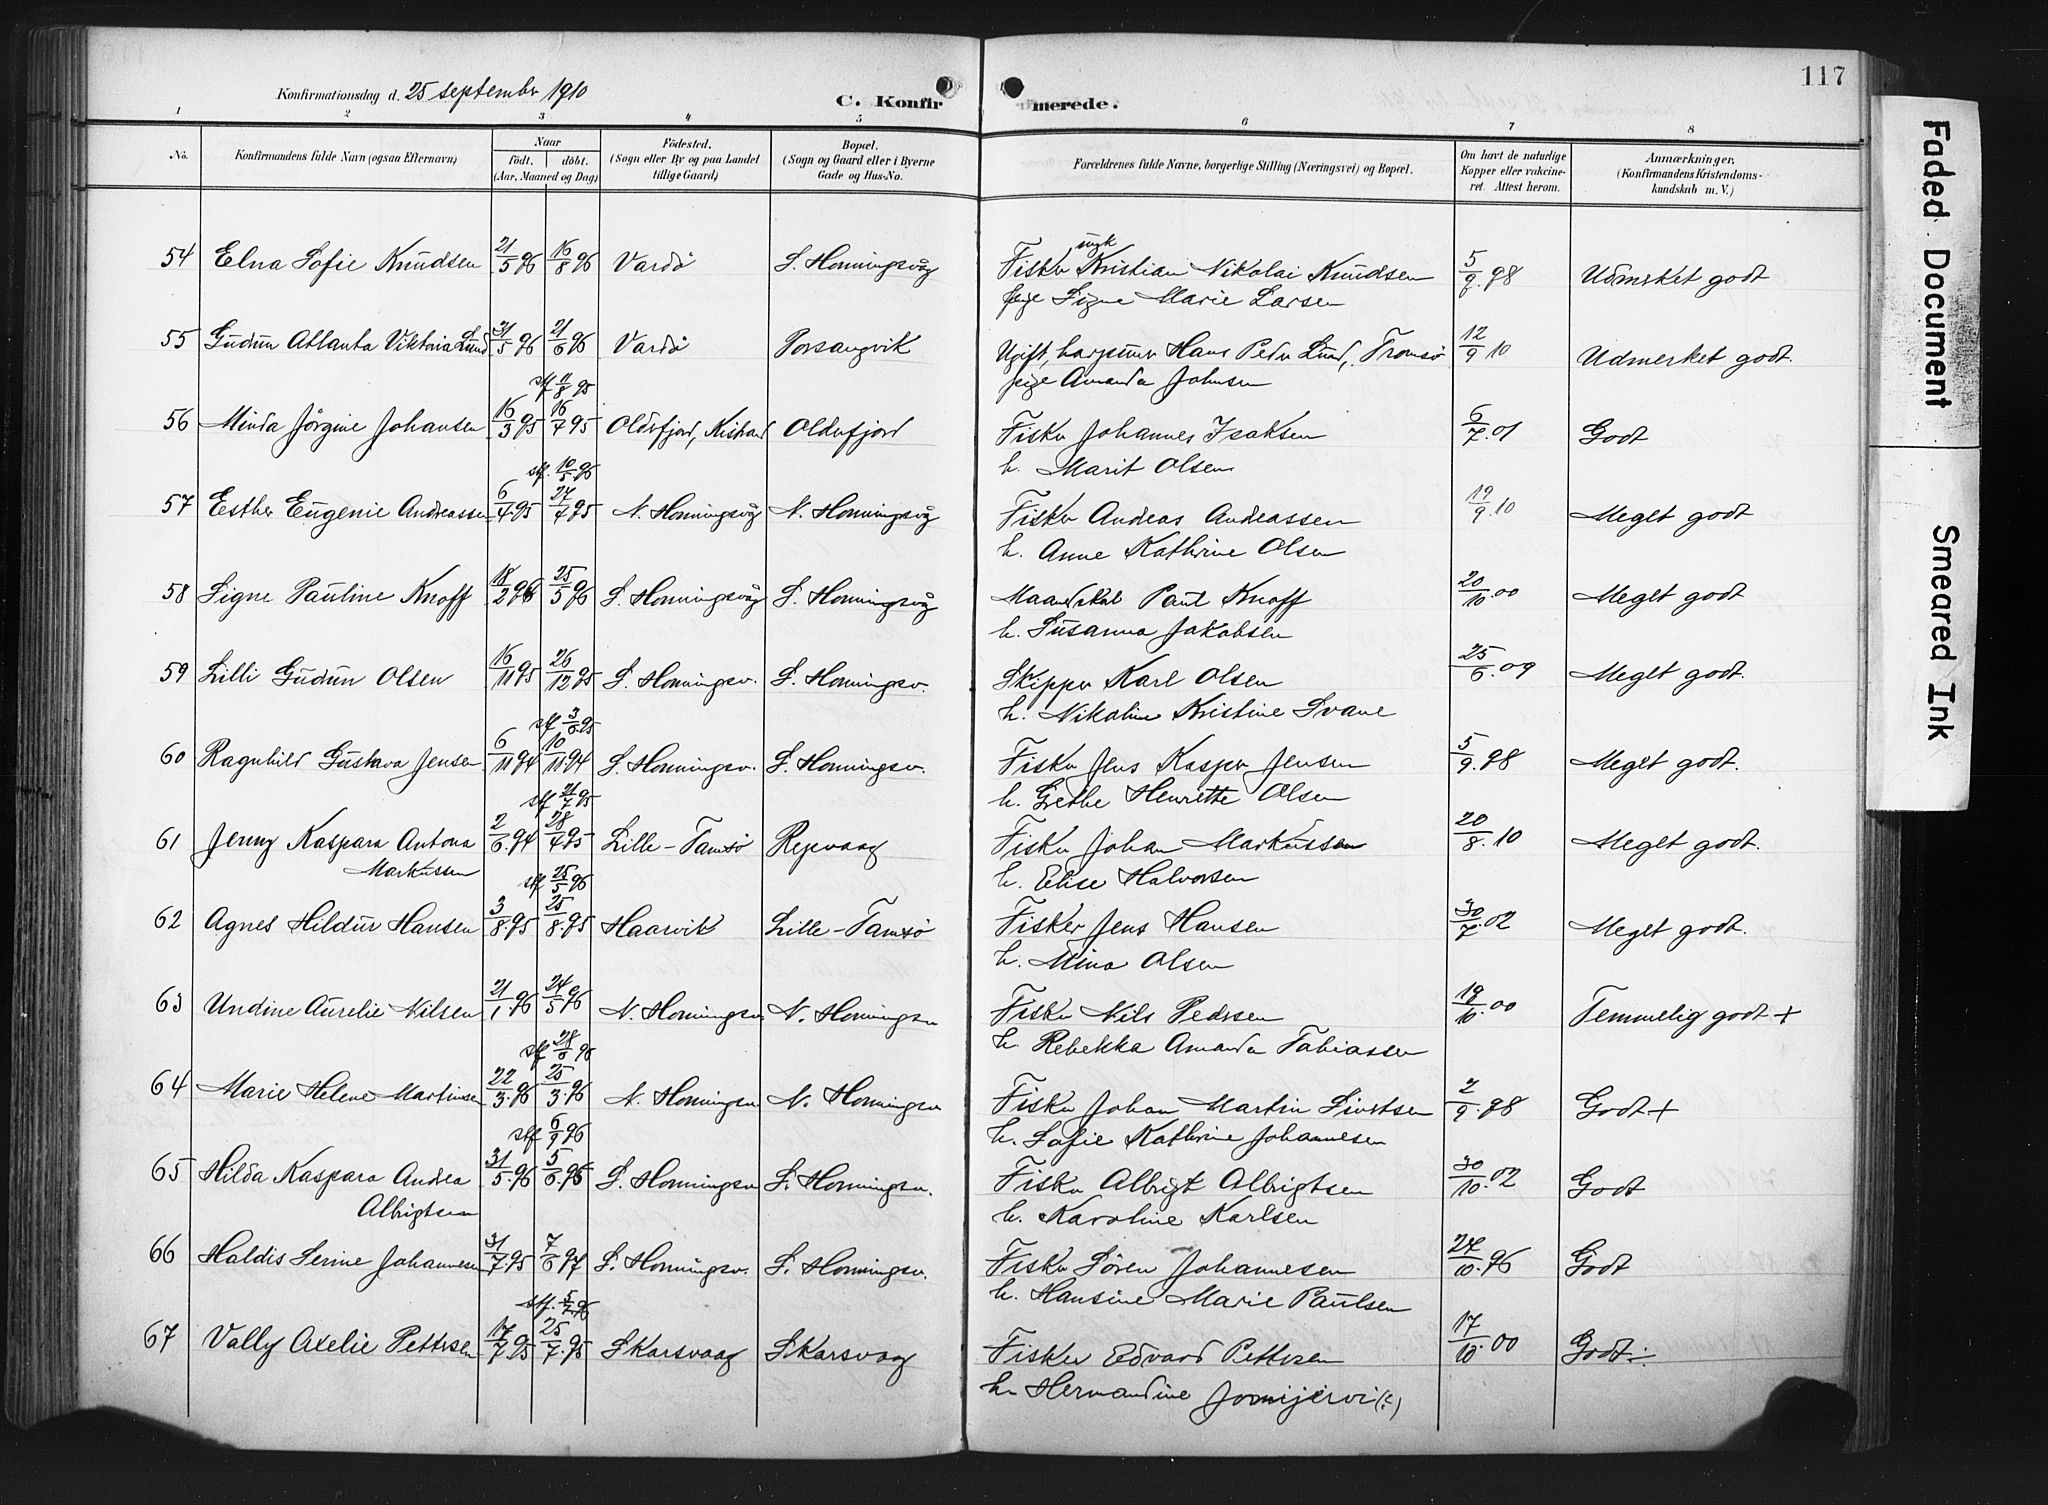 117
Konfirmationsdag d. 25 september 1910
C. Konfirmerede.
1 2 3 4 5 6 7 8
No.
Konfirmandens fulde Navn (ogsaa Efternavn)
Naar
födt. döbt.
(Aar, Maaned og Dag)
Födested.
(Sogn eller By og paa Landet
tillige Gaard)
Bopæl.
(Sogn og Gaard eller i Byerne
Gade og Hus-No.
Forældrenes fulde Navne, borgerlige Stilling (Næringsvei) og Bopæl.
Om havt de naturlige
Kopper eller vakcine-
ret. Attest herom.
Anmærkninger,
(Konfirmandens Kristendoms-
kundskab m. V.)
54 Elna Sofie Knudsen 21/5 96 16/8 96 Vardö S. Honningsvåg Fisker ungk Kristian Nikolai Knudsen 5/9.98 Udmrket godt
pige Signe Marie Larsen
55 Gudrun Atlanta Viktoria Lund 31/5 96 21/6 96 Vardö Porsangvik Ugift, Hans Peder Lund, Tromsö 12/9 10 Udmerket godt.
pige Amanda Johnsen
stf 11/8 95
56 Minda Jörgine Johansen 16/3 95 16/7 95 Oldrfjord, Kistrand Oldrfjord Fisker Johannes Isaksen 6/7.01 Godt
h. Marit Olsen
stf. 10/5 96
57 Esther Eugenie Andreassen 6/4 95 27/4 95 N. Honningsvåg N. Honningsvåg Fisker Andreas Andreassen 19/9.10 Meget godt
h. Anne Kathrine Olsen
58 Signe Pauline Knoff 18/2 96 25/5 96 S. Honningsvåg S. Honningsvåg Maandskal Paul Knoff 20/10.00 Meget godt
h. Susanna Jakobsen
59 Lilli Gudrun Olsen 16/11 95 26/12 95 S. Honningsv. S. Honningsv. Skipper Karl Olsen 25/6.09 Meget godt.
h. Nikoline Kristine Svane
stf 3/6 95
60 Ragnhild Gustava Jensen 6/11 94 10/11 94 S. Honningsv. S. Honningsv. Fisker Jens Kasper Jensen 5/9.98 Meget godt.
h. Grethe Henrette Olsen
stf 21/7 95
61 Jenny Kaspara Antona 2/6.94 28/4 95 Lille-Tamsö Repvaag Fisker Johan Markussen 20/8.10 Meget godt.
Markussen
h. Elise Halvorsen
stf 25/5 96
62 Agnes Hildur Hansen 3/8.95 25/8.95 Haarvik Lille-Tamsö Fisker Jens Hansen 30/7.02 Meget godt.
h. Mina Olsen
63 Undine Aurelie Nilsen 21/1.96 24/5 96 N. Honningsv. N. Honningsv Fisker Nils Pedrsen 19/10.00 Temmelig godt +
h Rebekka Amanda Tobiassen
stf 28/6 96
64 Marie Helene Martinsen 22/3.96 25/3.96 N. Honningsv N. Honningsv Fisker Johan Martin Sivrtsen 2/9.98 Godt +
h. Sofie Kathrine Johannesen
stf 6/9 96
65 Hilda Kaspara Andrea 31/5.96 5/6.96 S. Honningsv S. Honningsv. Fisker Albrigt Albrigtsen 30/10.02 Godt
Albrigtsen
h. Karoline Karlsen
66 Haldis Serine Johannesen 31/7.95 7/6 97 S. Honningsv. S. Honningsv. Fisker Sören Johannesen 27/10.96 Godt
h. Hansine Marie Paulsen
stf. 5/7.96
67 Vally Axelie Pettrsen 17/7 95 25/7.95 Skarsvaag Skarsvaag Fisker Edvard Pettrsen 17/10.00 Godt ÷
h Hermandine Jomijervi (?)
Faded Document
Smeared Ink